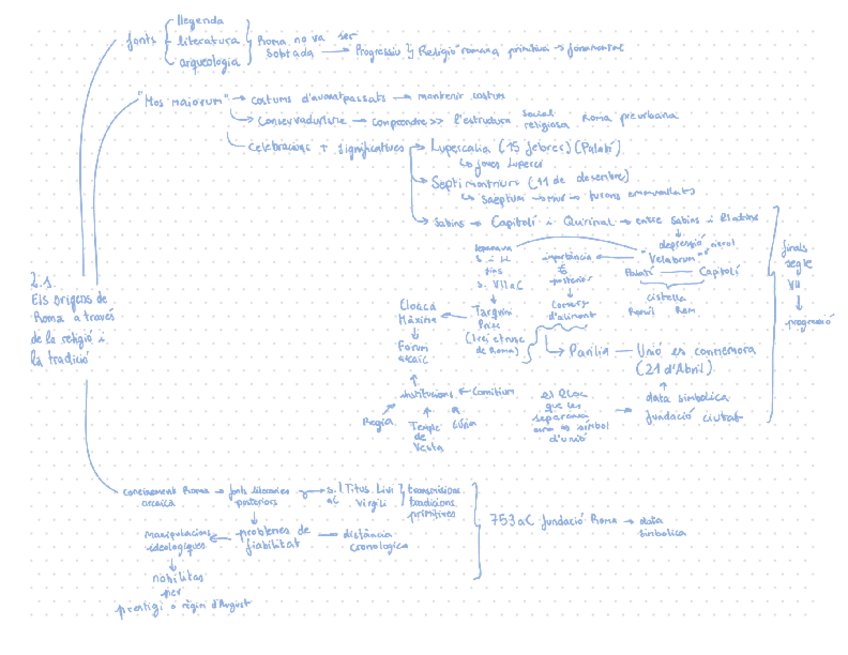 llegenda
fonts literatura Roma no va ser
sobtada → Progressiu Religió romana primitiva → fonamental
arqueologia
"Mos maiorum" → costums d'avantpassats → mantenir costum
Conservadurisme → comprendre >> l'estructura social religiosa Roma preurbana
Celebracions + significatives → Lupercalia (15 febrer) (Palatí)
↳ joves luperci
Septimontium (11 de desembre)
↳ Saeptum → mur → turons emmurallats
Sabins → Capitolí i Quirinal → entre Sabins i llatins
depressió
"Velabrum"
Palatí — Capitolí
cistella
Ròmul Rem
importància
posterior
Comerç
d'aliment
separava
S i LL
fins
s. VII aC
Tarquini
Prisc
(1 rei etrusc
de Roma)
Cloaca
Màxima
Forum
arcaic
institucions ← Comitium
Regia
Temple
de
Vesta
Cúria
Parilia — Unió es commemora
(21 d'Abril)
data simbolica
fundació ciutat
el lloc
que les
separava
símbol
d'unió
finals
segle
VII
progressió
2.1.
Els orígens de
Roma a través
de la religió i
la tradició
coneixement Roma → fonts literaries → s. I Titus Livi transmissions
arcaica posteriors aC Virgili tradicions
primitives
manipulacions ← problemes de — distància
ideologiques fiabilitat cronologica
nobilitas
per
prestigi o règim d'August
753 aC fundació Roma → data
simbolica